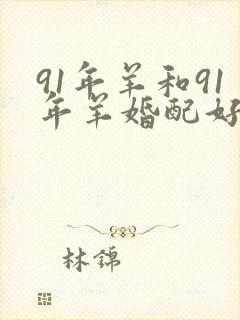 91年羊和91
年羊婚配好
林锦